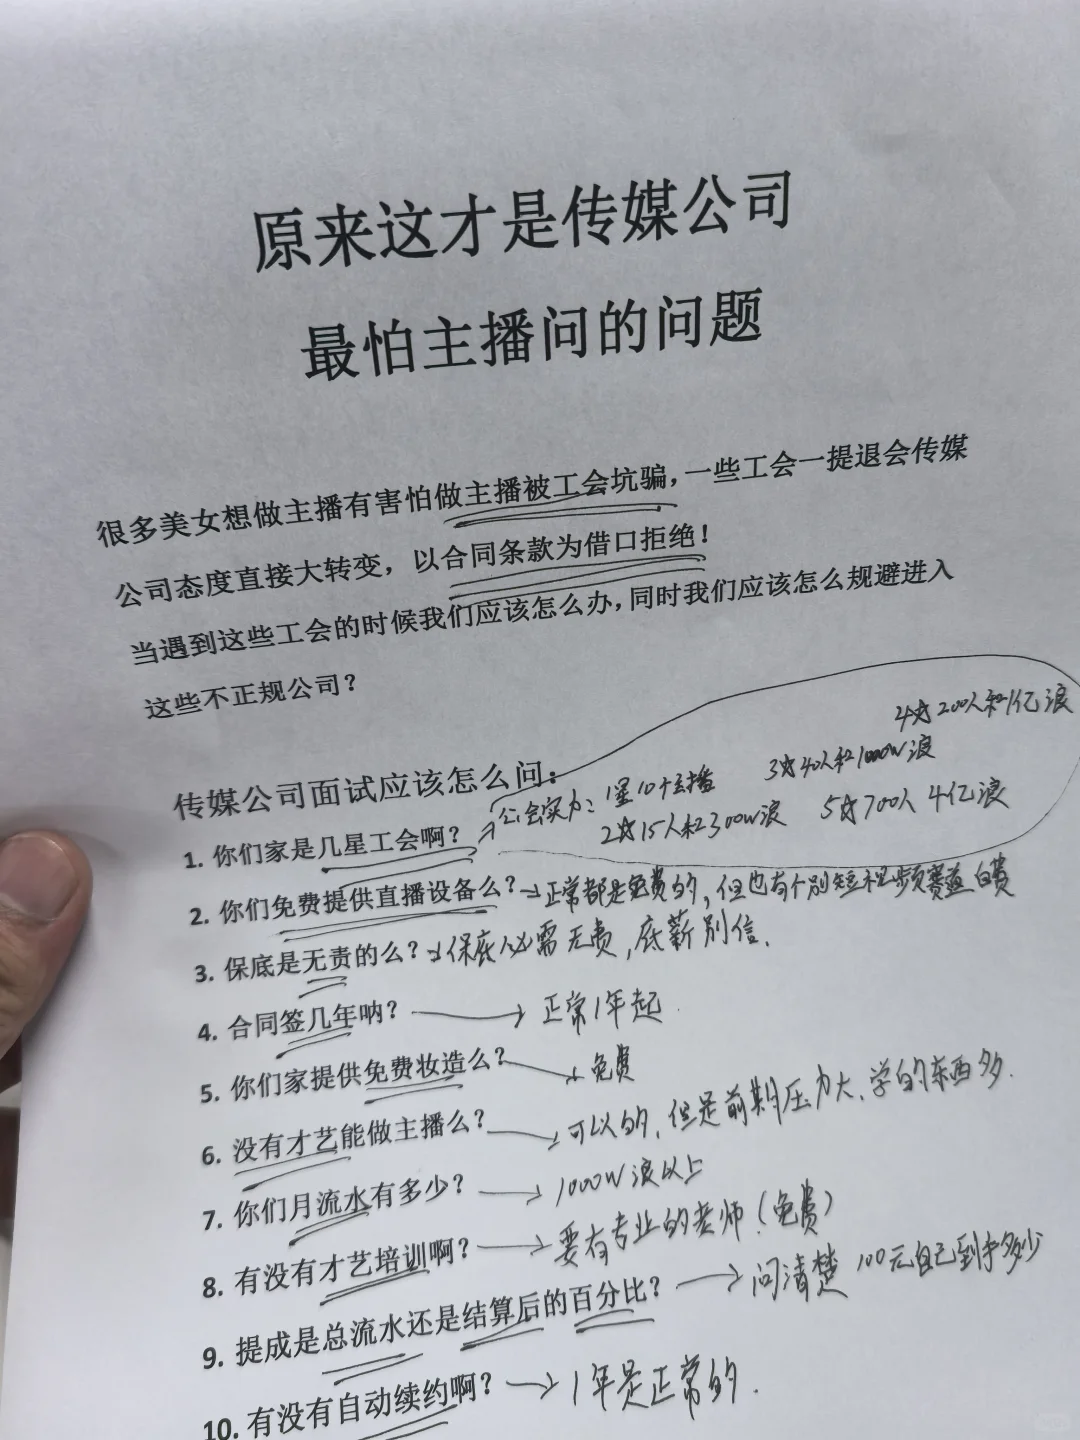 原来这才是传媒公司
最怕主播问的问题
很多美女想做主播有害怕做主播被工会坑骗,一些工会一提退会传媒
公司态度直接大转变，以合同条款为借口拒绝！
当遇到这些工会的时候我们应该怎么办,同时我们应该怎么规避进入
这些不正规公司？
传媒公司面试应该怎么问：
4☆200人和1亿浪
3☆40人和1000W浪
公会实力：1星10个主播
2☆15人和300W浪
5☆700人 4亿浪
1. 你们家是几星工会啊？
2. 你们免费提供直播设备么？→正常都是免费的，但也有个别短视频赛道自费
3. 保底是无责的么？→保底必需无责，底薪别信.
4. 合同签几年呐？→正常1年起.
5. 你们家提供免费妆造么？→免费
6. 没有才艺能做主播么？→可以的，但是前期压力大、学的东西多.
7. 你们月流水有多少？→1000W浪以上
8. 有没有才艺培训啊？→要有专业的老师（免费）
9. 提成是总流水还是结算后的百分比？→问清楚 100元自己到手多少
10. 有没有自动续约啊？→1年是正常的.